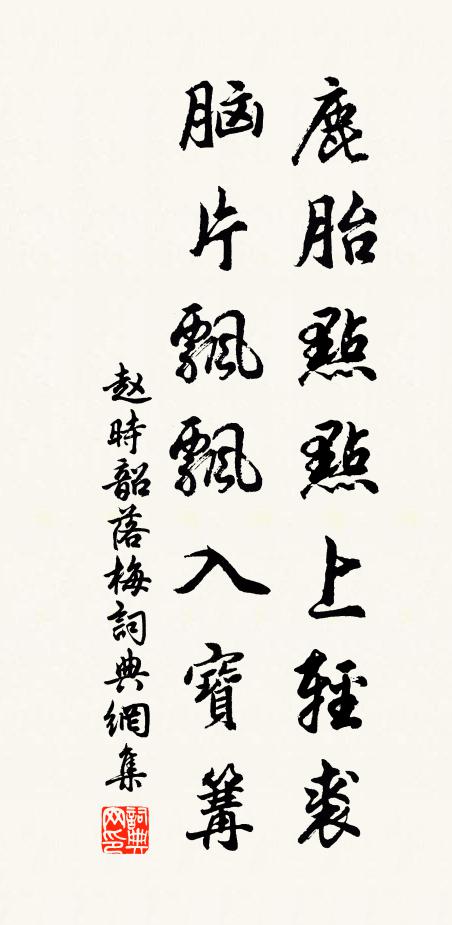 鹿胎點點上輕裘
脑片飄飄入寶篝
赵時韶落梅詞典網集
詞典网印